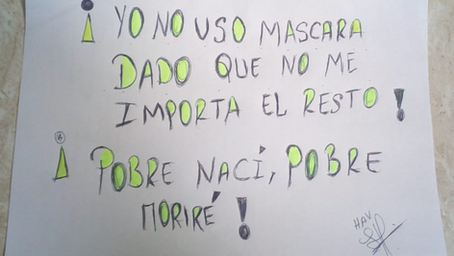 ¡ YO NO USO MASCARA
DADO QUE NO ME
IMPORTA EL RESTO!
¡ POBRE NACÍ, POBRE
MORIRÉ!
HAV